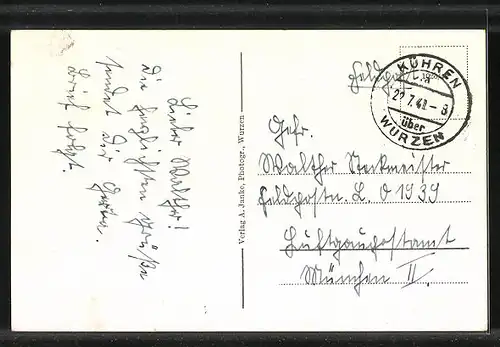 Lieber Walther!
Die herzlichsten Grüße
sendet Dir
Brief folgt.
Verlag A. Janke, Photogr., Wurzen
Feldpost
KÜHREN
22.7.41.-8
über
WURZEN
Gefr.
Walther Steckmeister
Feldpostn. L. O 1939
Luftgaupostamt
München II.